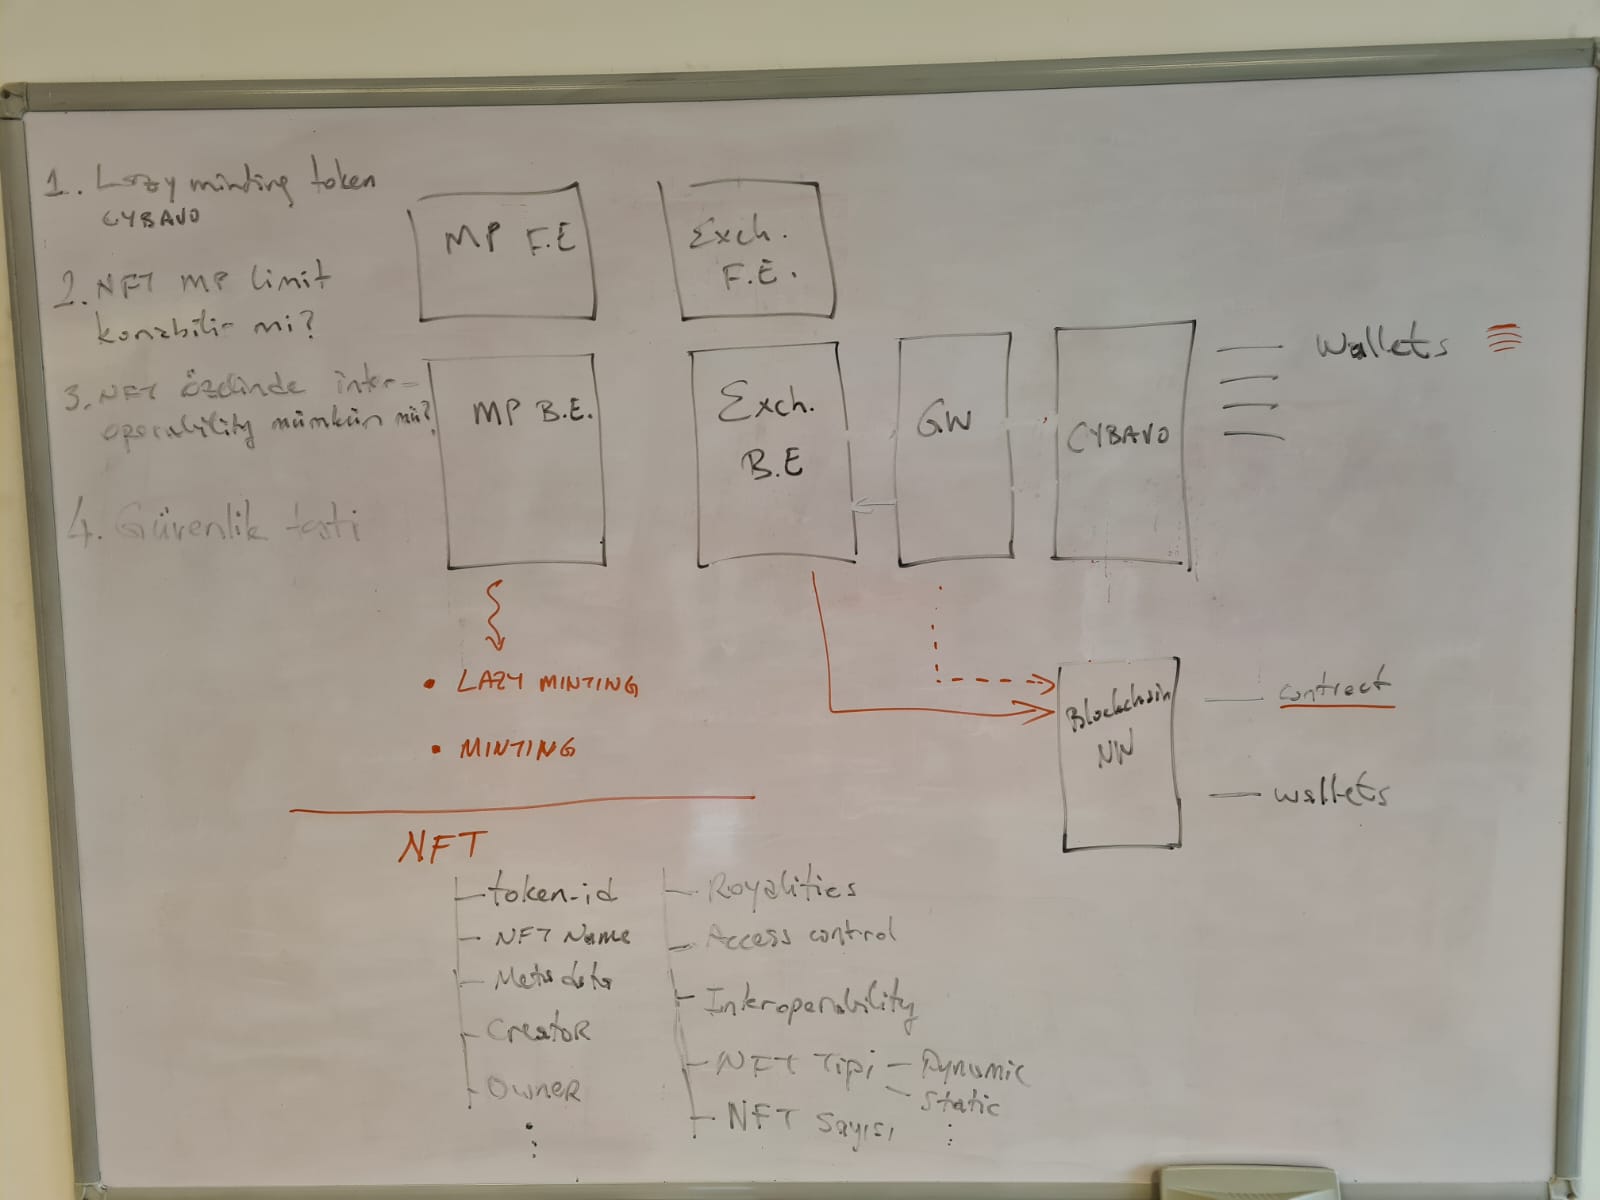 1. Lazy minting token
CYBAVO
2. NFT MP limit
konabilir mi?
3. NFT özelinde inter-
operability mümkün mü?
4. Güvenlik testi
MP F.E
Exch.
F.E.
MP B.E.
Exch.
B.E
GW
CYBAVO
Wallets
• LAZY MINTING
• MINTING
Blockchain
NW
contract
wallets
NFT
token-id
NFT Name
Metadata
Creator
Owner
Royalities
Access control
Interoperability
NFT Tipi - Dynamic
- Static
NFT Sayısı